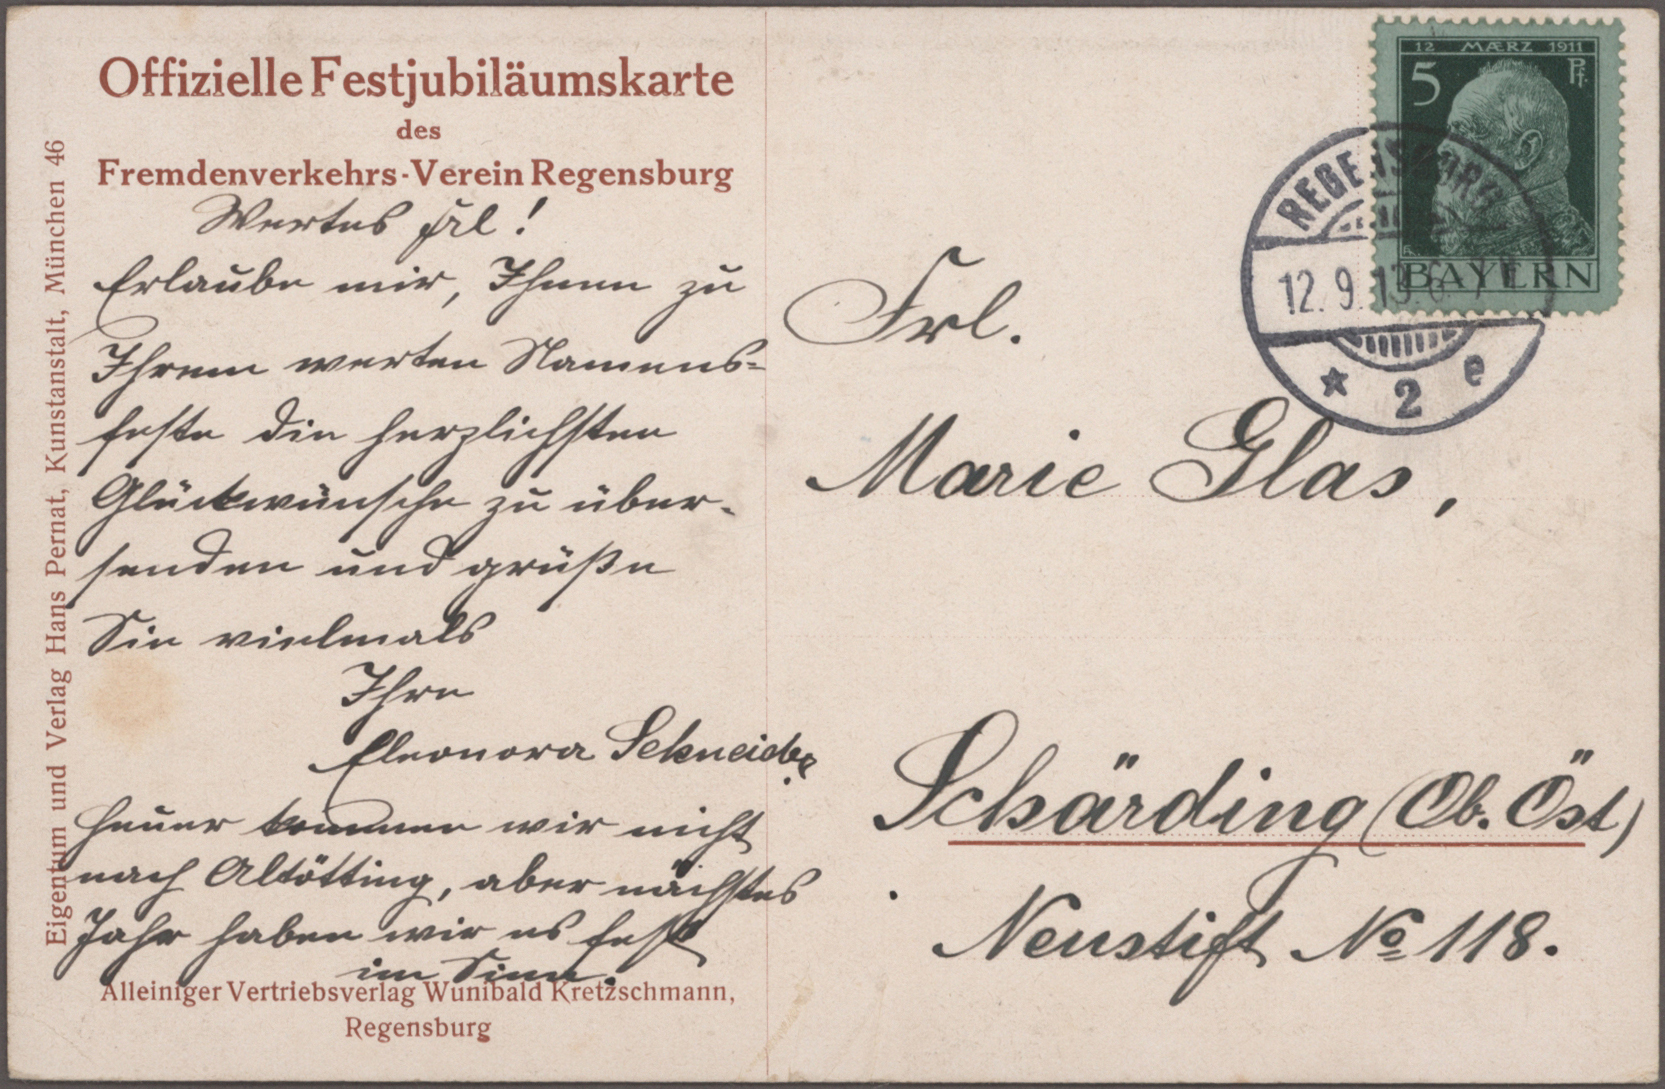 Offizielle Festjubiläumskarte
des
Fremdenverkehrs-Verein Regensburg
Wertes Frl!
Erlaube mir, Ihnen zu
Ihrem werten Namens=
feste die herzlichsten
Glückwünsche zu über-
senden und grüße
Sie vielmals
Ihre
Eleonora Schneider
Heuer kommen wir nicht
nach Altötting, aber nächstes
Jahr haben wir es fest
im Sinn.
Alleiniger Vertriebsverlag Wunibald Kretzschmann,
Regensburg
Eigentum und Verlag Hans Pernat, Kunstanstalt, München 46
12 MÆRZ 1911
5 Pf.
BAYERN
REGENSBURG
12. 9. 13. 6-7
* 2 e
Frl.
Marie Glas,
Schärding (Ob. Öst)
Neustift No 118.